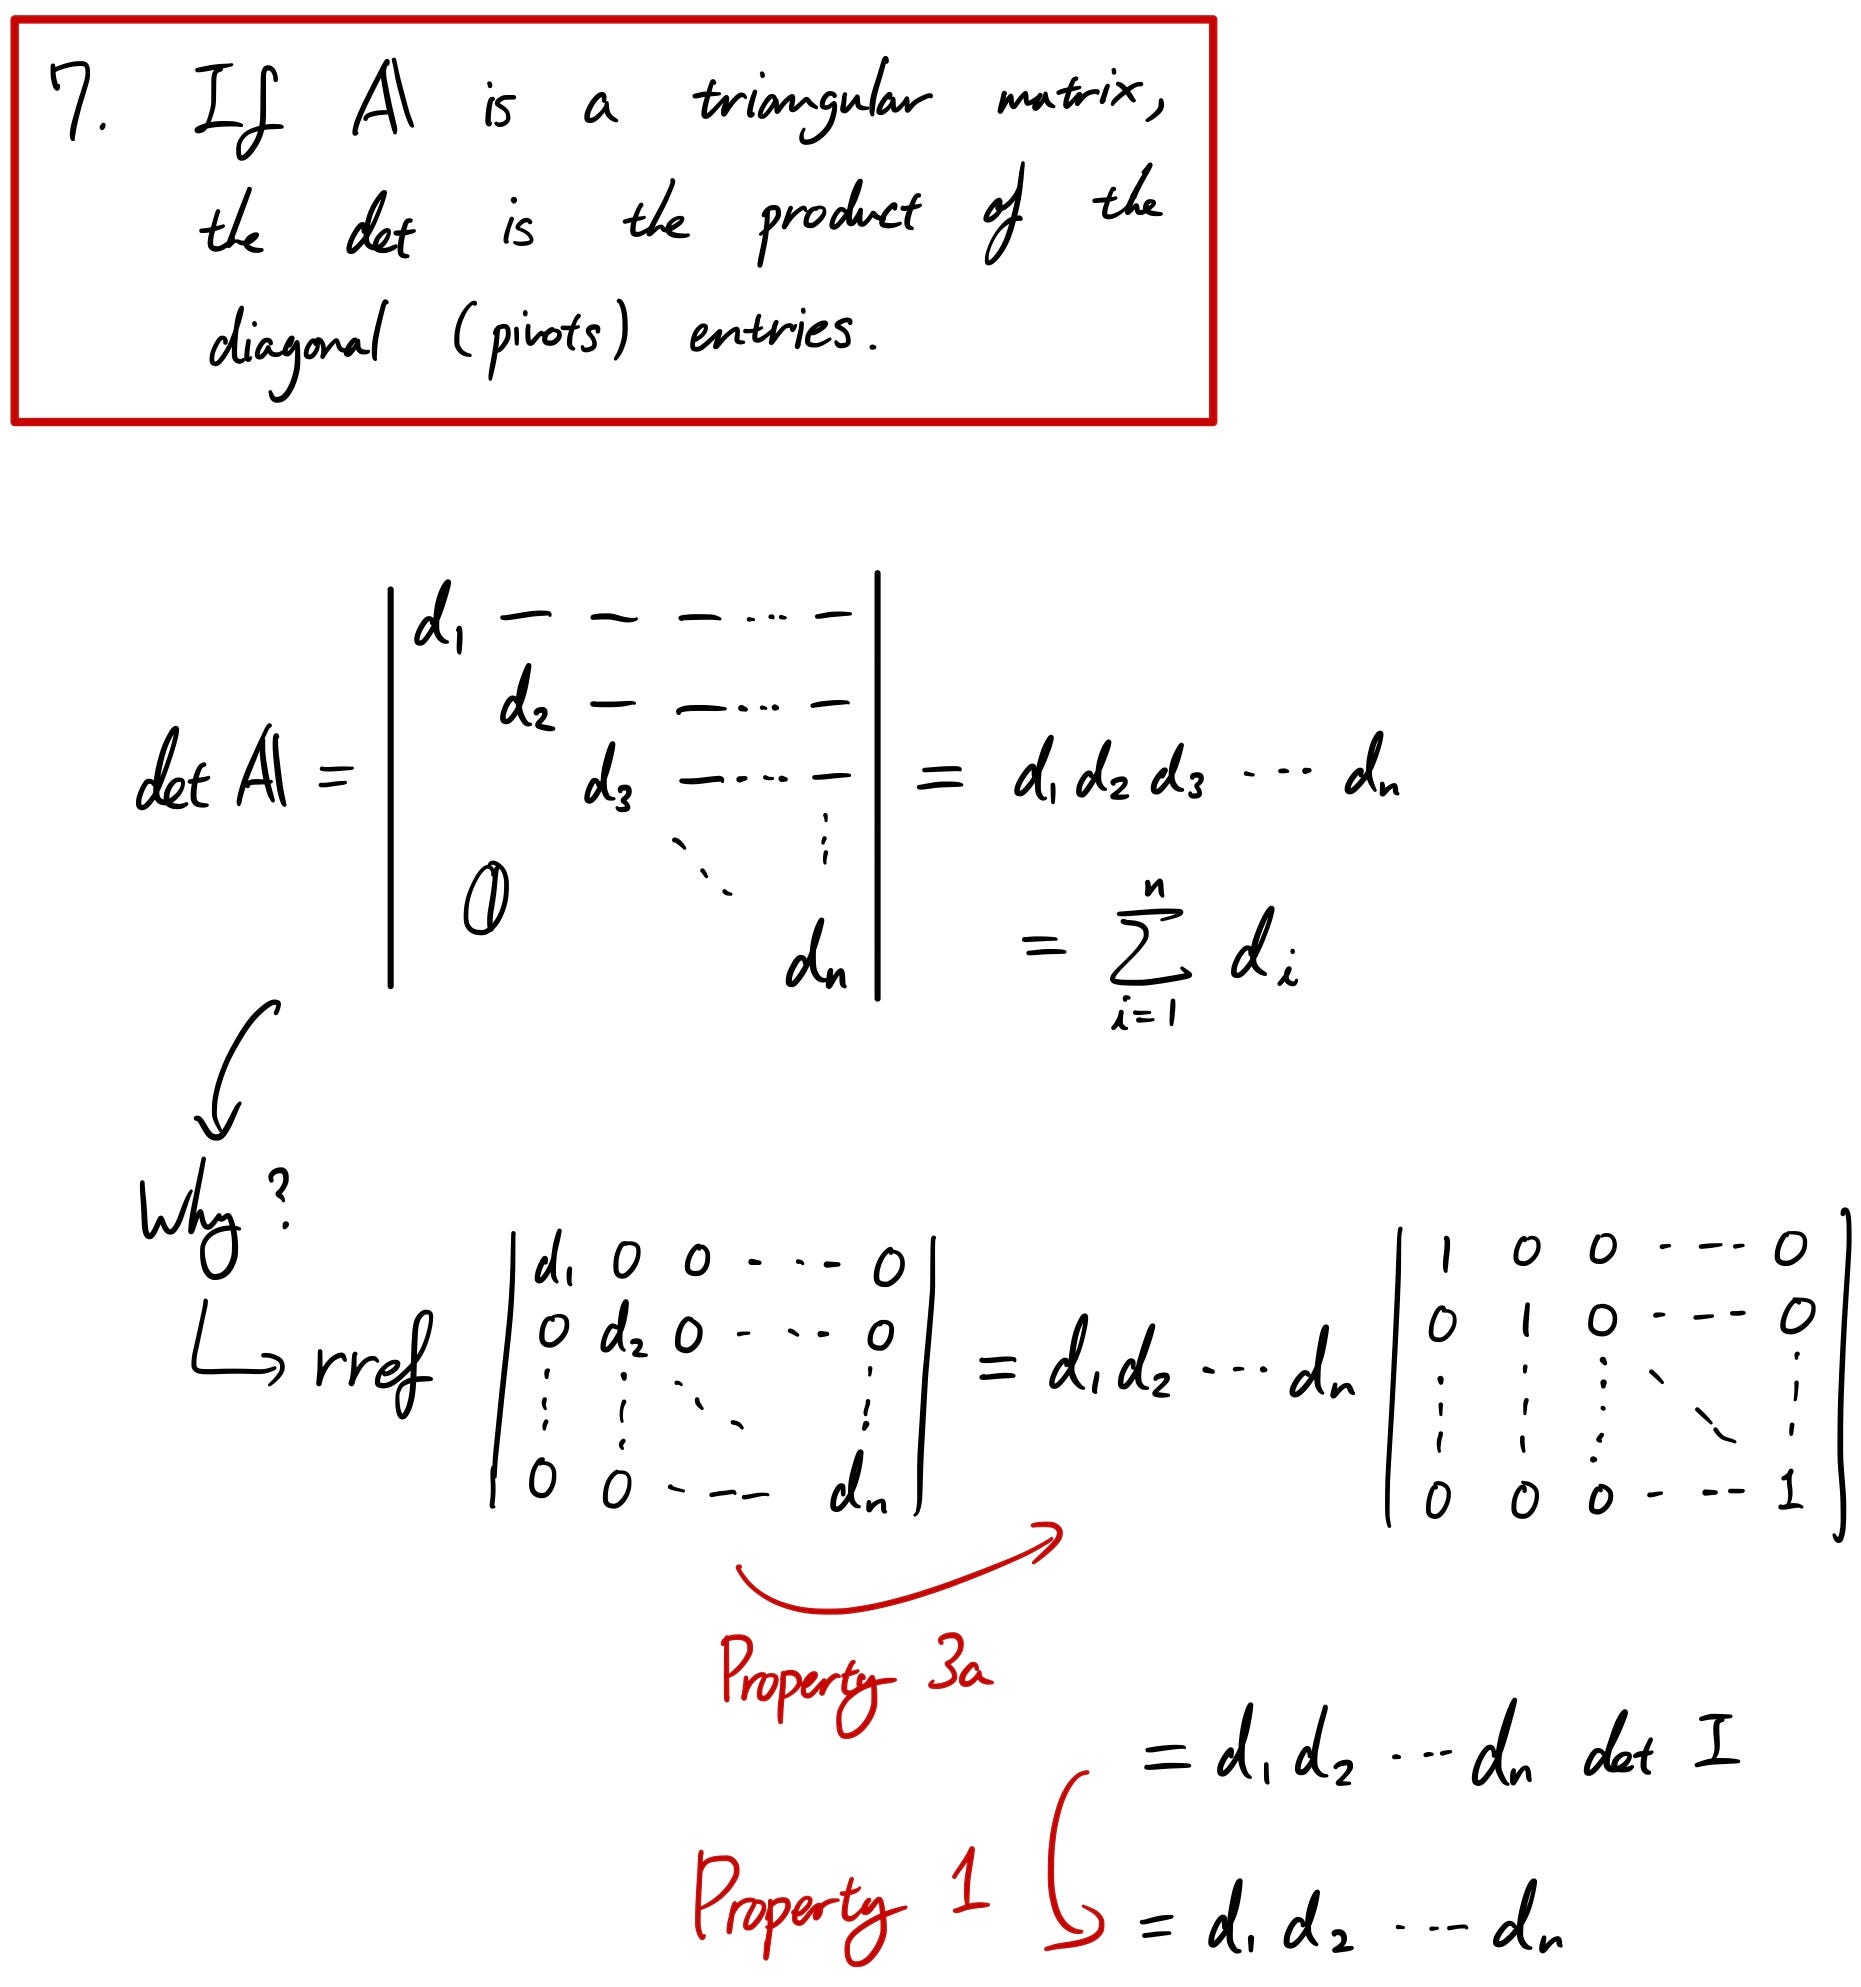 7. If A is a triangular matrix,
the det is the product of the
diagonal (pivots) entries.
det A = | d₁ — — — ... — |
| d₂ — — ... — |
| d₃ — ... — | = d₁ d₂ d₃ ... dₙ
| 0 ⋱ ⋮ |
| dₙ |
= ∑ᵢ₌₁ⁿ dᵢ
Why?
rref | d₁ 0 0 ... 0 | = d₁ d₂ ... dₙ | 1 0 0 ... 0 |
| 0 d₂ 0 ... 0 | | 0 1 0 ... 0 |
| ⋮ ⋮ ⋱ ⋮ | | ⋮ ⋮ ⋮ ⋱ ⋮ |
| 0 0 ... dₙ | | 0 0 0 ... 1 |
Property 3a
= d₁ d₂ ... dₙ det I
Property 1
= d₁ d₂ ... dₙ